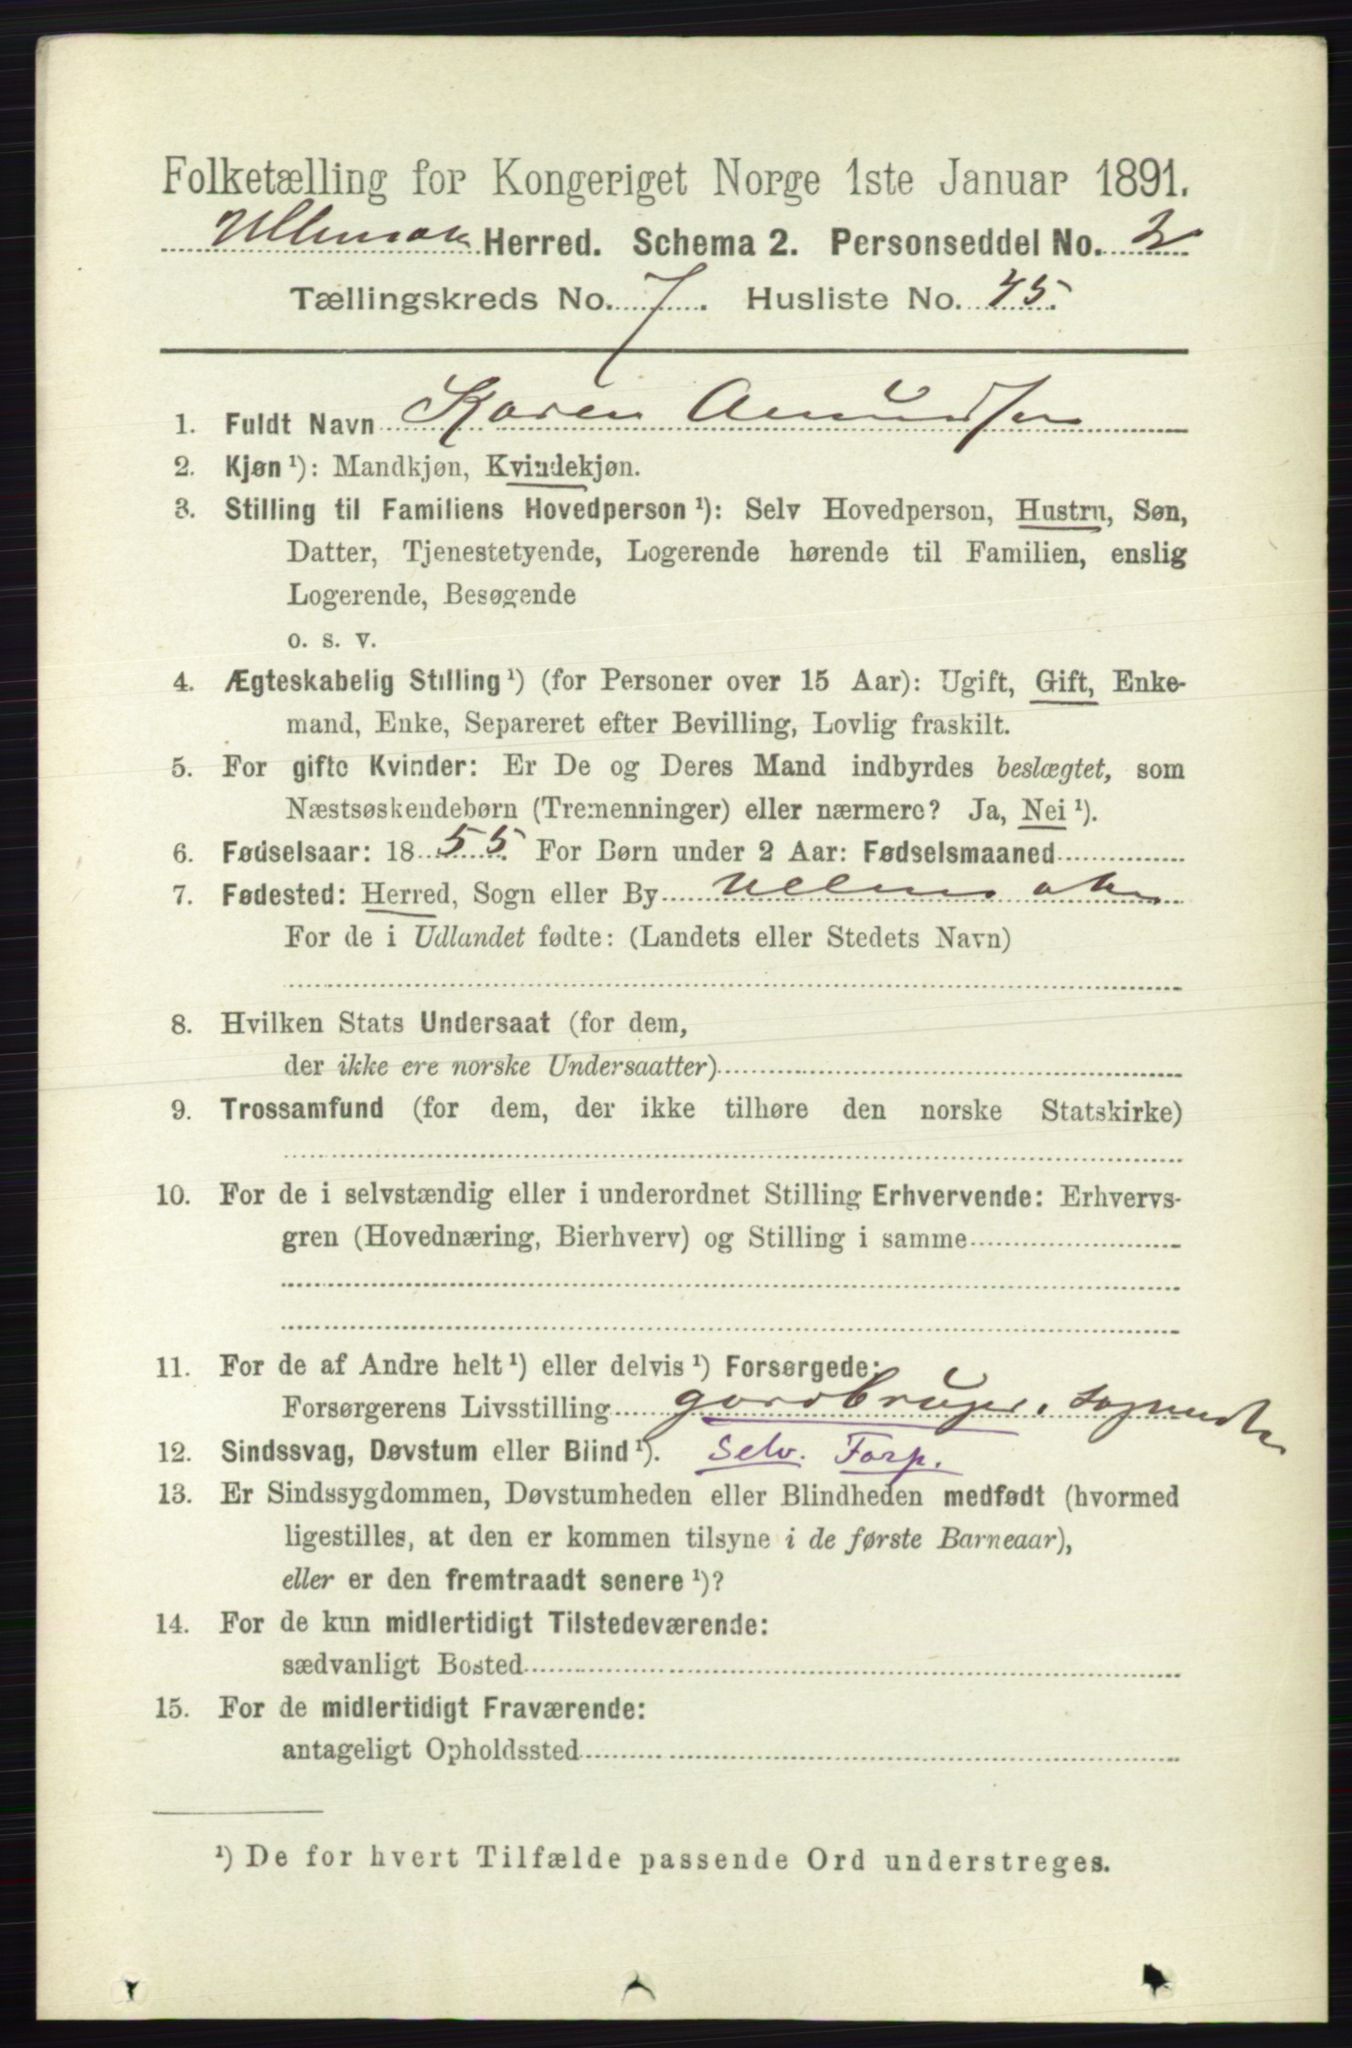 Folketælling for Kongeriget Norge 1ste Januar 1891.
Ullensak Herred. Schema 2. Personseddel No. 2
Tællingskreds No. 7. Husliste No. 45.
1. Fuldt Navn Karen Amundsen
2. Kjøn ¹): Mandkjøn, Kvindekjøn.
3. Stilling til Familiens Hovedperson ¹): Selv Hovedperson, Hustru, Søn,
Datter, Tjenestetyende, Logerende hørende til Familien, enslig
Logerende, Besøgende
o. s. v.
4. Ægteskabelig Stilling ¹) (for Personer over 15 Aar): Ugift, Gift, Enke-
mand, Enke, Separeret efter Bevilling, Lovlig fraskilt.
5. For gifte Kvinder: Er De og Deres Mand indbyrdes beslægtet, som
Næstsøskendebørn (Tremenninger) eller nærmere? Ja, Nei ¹).
6. Fødselsaar: 1855. For Børn under 2 Aar: Fødselsmaaned
7. Fødested: Herred, Sogn eller By Ullensaker
For de i Udlandet fødte: (Landets eller Stedets Navn)
8. Hvilken Stats Undersaat (for dem,
der ikke ere norske Undersaatter)
9. Trossamfund (for dem, der ikke tilhøre den norske Statskirke)
10. For de i selvstændig eller i underordnet Stilling Erhvervende: Erhvervs-
gren (Hovednæring, Bierhverv) og Stilling i samme
11. For de af Andre helt ¹) eller delvis ¹) Forsørgede:
Forsørgerens Livsstilling gaardbruger.
12. Sindssvag, Døvstum eller Blind ¹). Selv. Forp.
13. Er Sindssygdommen, Døvstumheden eller Blindheden medfødt (hvormed
ligestilles, at den er kommen tilsyne i de første Barneaar),
eller er den fremtraadt senere ¹)?
14. For de kun midlertidigt Tilstedeværende:
sædvanligt Bosted
15. For de midlertidigt Fraværende:
antageligt Opholdssted
¹) De for hvert Tilfælde passende Ord understreges.